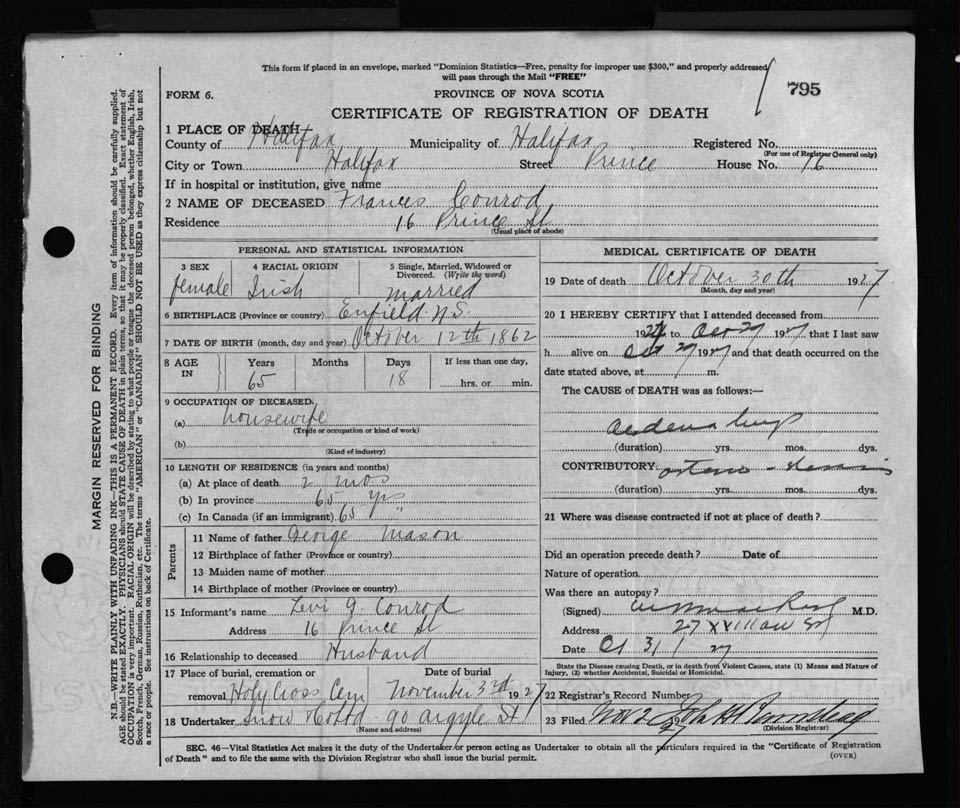 This form if placed in an envelope, marked "Dominion Statistics—Free, penalty for improper use $300," and properly addressed
will pass through the Mail "FREE"
795
FORM 6.
PROVINCE OF NOVA SCOTIA
CERTIFICATE OF REGISTRATION OF DEATH
1 PLACE OF DEATH—
County of Halifax Municipality of Halifax Registered No.
(For use of Registrar General only)
City or Town Halifax Street Prince House No. 16
If in hospital or institution, give name
2 NAME OF DECEASED Frances Conrod
Residence 16 Prince St
(Usual place of abode)
PERSONAL AND STATISTICAL INFORMATION
3 SEX
female
4 RACIAL ORIGIN
Irish
5 Single, Married, Widowed or
Divorced. (Write the word)
married
6 BIRTHPLACE (Province or country) Enfield N.S.
7 DATE OF BIRTH (month, day and year) October 12th 1862
8 AGE IN
Years
65
Months
Days
18
If less than one day,
hrs. or min.
9 OCCUPATION OF DECEASED.
(a) housewife
(Trade or occupation or kind of work)
(b)
(Kind of industry)
10 LENGTH OF RESIDENCE (in years and months)
(a) At place of death 2 mos
(b) In province 65 yrs
(c) In Canada (if an immigrant) 65 "
Parents
11 Name of father George Mason
12 Birthplace of father (Province or country)
13 Maiden name of mother
14 Birthplace of mother (Province or country)
15 Informant's name Levi G. Conrod
Address 16 Prince St
16 Relationship to deceased Husband
17 Place of burial, cremation or
removal Holy Cross Cem
Date of burial
November 3rd 1927
18 Undertaker Snow & Co Ltd 90 Argyle St
(Name and address)
MEDICAL CERTIFICATE OF DEATH
19 Date of death October 30th 1927
(Month, day and year)
20 I HEREBY CERTIFY that I attended deceased from
1927 to Oct 29 1927 that I last saw
h alive on Oct 29 1927 and that death occurred on the
date stated above, at m.
The CAUSE OF DEATH was as follows:—
(duration) yrs. mos. dys.
CONTRIBUTORY
(duration) yrs. mos. dys.
21 Where was disease contracted if not at place of death?
Did an operation precede death? Date of
Nature of operation
Was there an autopsy?
(Signed) M.D.
Address
Date Oct 31 / 27
State the Disease causing Death, or in death from Violent Causes, state (1) Means and Nature of
Injury, (2) whether Accidental, Suicidal or Homicidal.
22 Registrar's Record Number
23 Filed Nov 2 1927
(Division Registrar)
SEC. 46—Vital Statistics Act makes it the duty of the Undertaker or person acting as Undertaker to obtain all the particulars required in the "Certificate of Registration
of Death" and to file the same with the Division Registrar who shall issue the burial permit.
(OVER)
MARGIN RESERVED FOR BINDING
N.B.—WRITE PLAINLY WITH UNFADING INK—THIS IS A PERMANENT RECORD. Every item of information should be carefully supplied.
AGE should be stated EXACTLY. PHYSICIANS should STATE CAUSE OF DEATH in plain terms, so that it may be properly classified. Exact statement of
OCCUPATION is very important. RACIAL ORIGIN will be described by stating to what people or tongue the deceased person belonged, whether English, Irish,
Scotch, French, German, Russian, Ruthenian, etc. The terms "AMERICAN" or "CANADIAN" SHOULD NOT BE USED as they express citizenship but not
a race or people. See instructions on back of Certificate.